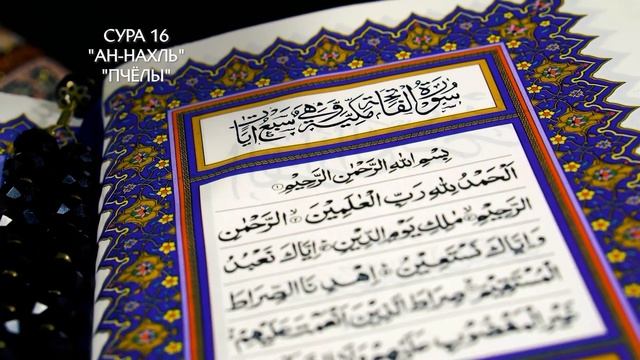 СУРА 16
"АН-НАХЛЬ"
"ПЧЁЛЫ"
سُورَةُ الْفَاتِحَةِ مَكِّيَّةٌ وَهِيَ سَبْعُ آيَاتٍ
بِسْمِ اللهِ الرَّحْمٰنِ الرَّحِيمِ ۝١
اَلْحَمْدُ لِلهِ رَبِّ الْعَالَمِينَ ۝٢ اَلرَّحْمٰنِ
الرَّحِيمِ ۝٣ مٰلِكِ يَوْمِ الدِّينِ ۝٤ اِيَّاكَ نَعْبُدُ
وَاِيَّاكَ نَسْتَعِينُ ۝٥ اِهْدِنَا الصِّرَاطَ
الْمُسْتَقِيمَ ۝٦ صِرَاطَ الَّذِينَ اَنْعَمْتَ عَلَيْهِمْ
غَيْرِ الْمَغْضُوبِ عَلَيْهِمْ